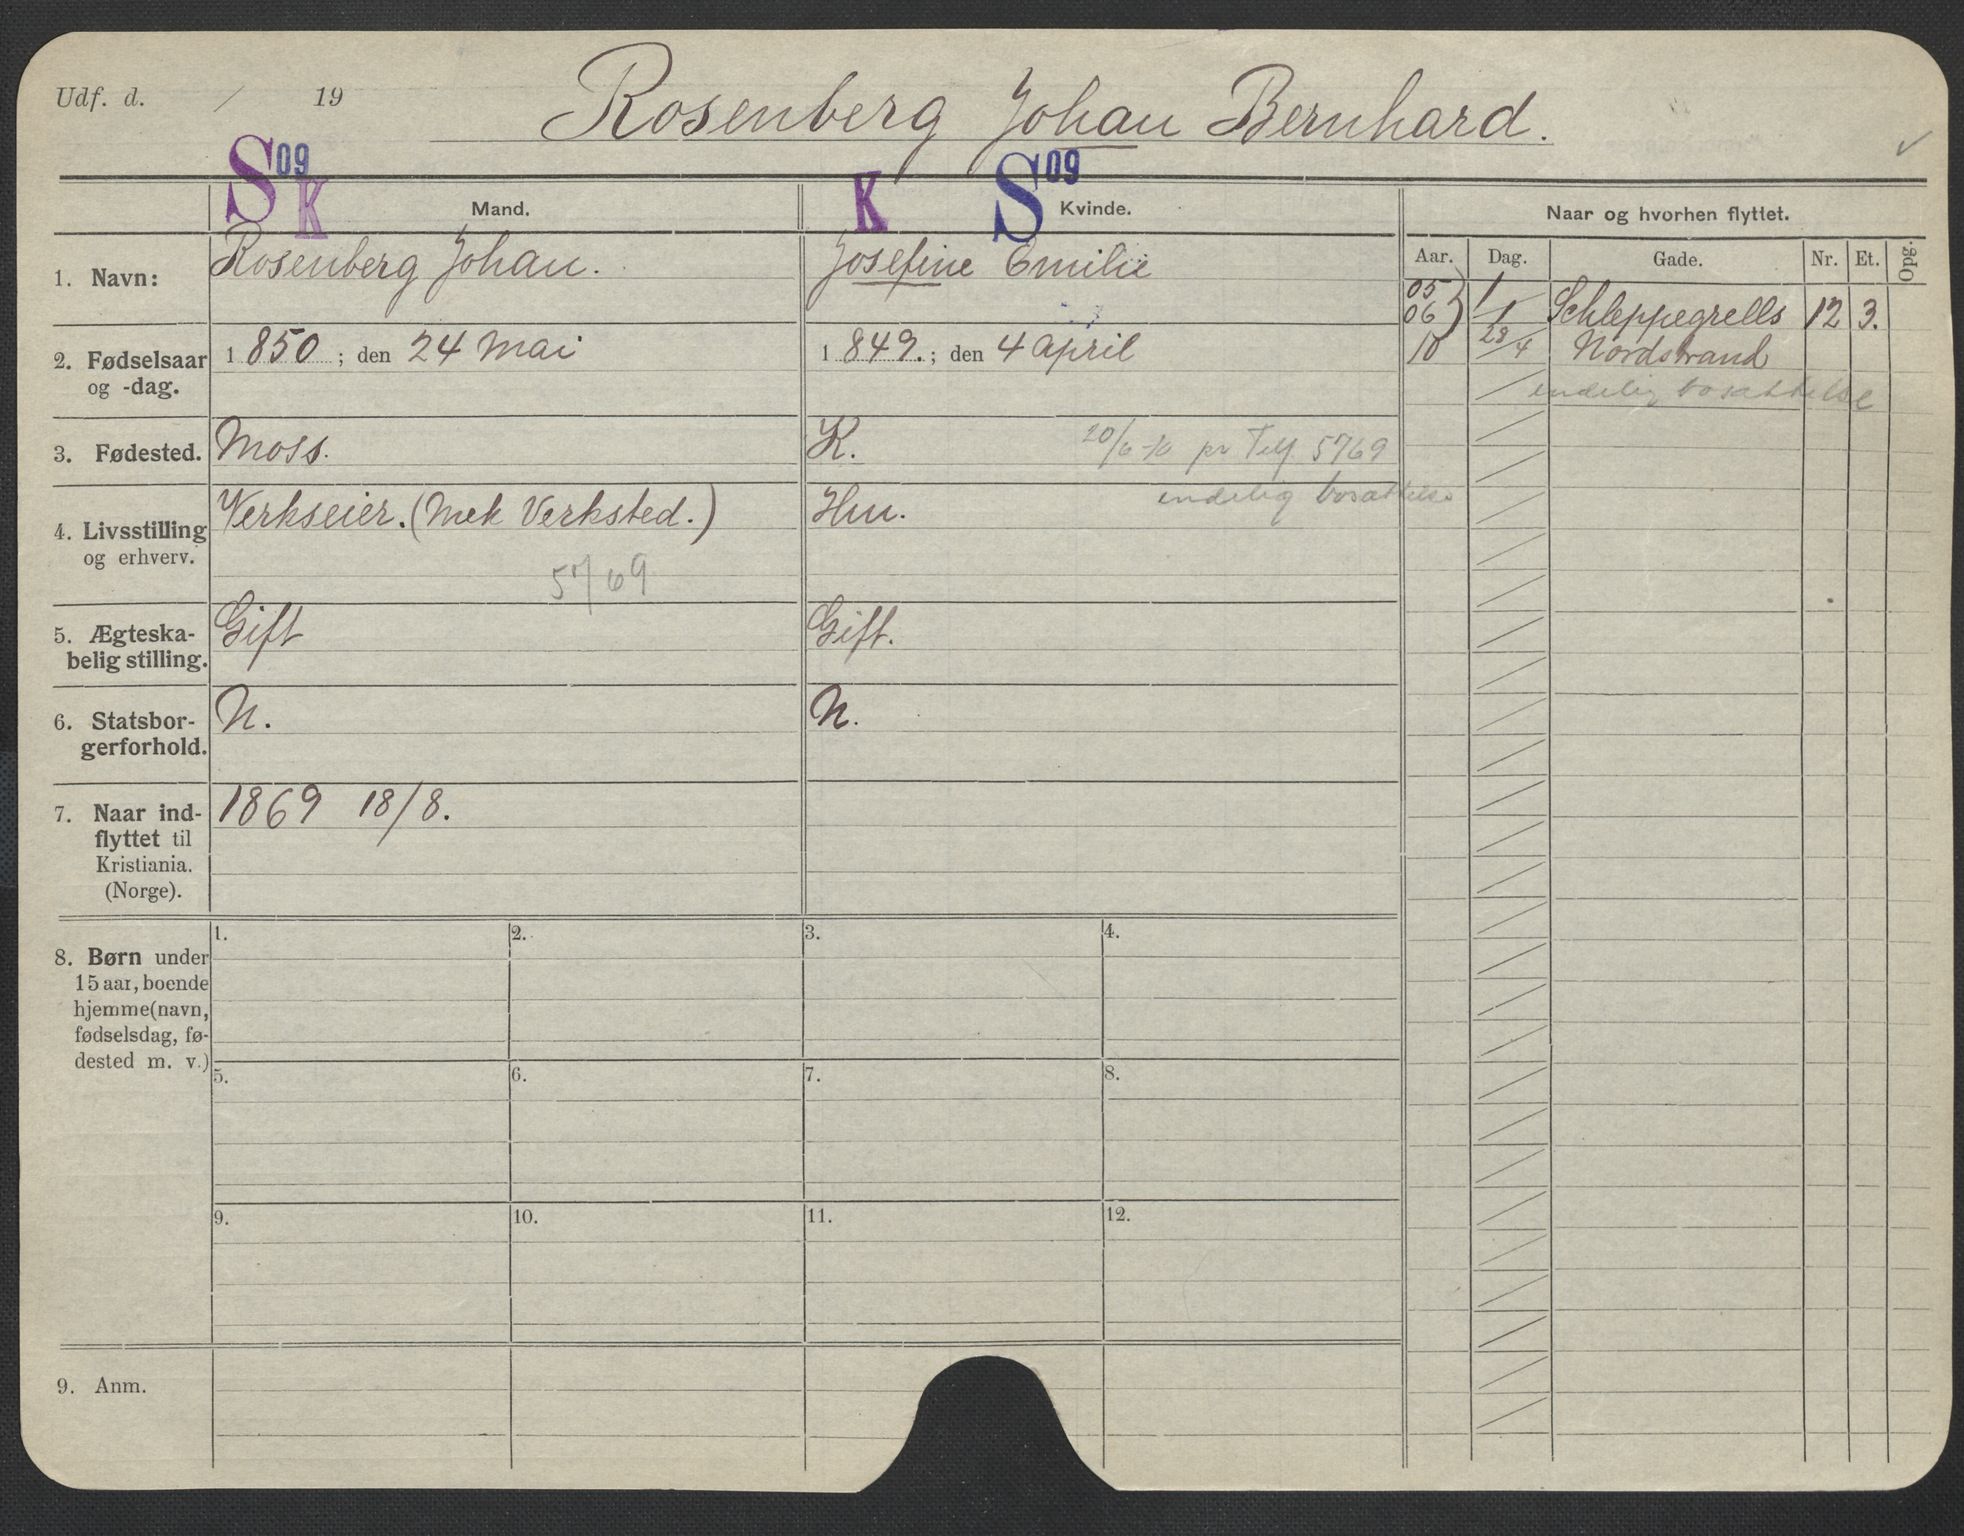 Udf. d. / 19
Rosenberg Johan Bernhard.
S 09 K
K S 09
Mand.
Kvinde.
Naar og hvorhen flyttet.
Aar. Dag. Gade. Nr. Et. Opg.
1. Navn: Rosenberg Johan. Josefine Emilie
05
06 } 1/1 Schleppegrells 12 3.
10 28/4 Nordstrand
endelig bosættelse
2. Fødselsaar og -dag. 1850; den 24 Mai 1849.; den 4 april
3. Fødested. Moss. K. 20/6-10 pr Telf 5769
endelig bosættelse
4. Livsstilling og erhverv. Verkseier. (Mek Verksted.) Hu.
5769
5. Ægteska-
belig stilling. Gift Gift.
6. Statsbor-
gerforhold. N. N.
7. Naar ind-
flyttet til
Kristiania.
(Norge). 1869 18/8.
8. Børn under
15 aar, boende
hjemme (navn,
fødselsdag, fø-
dested m. v.)
1. 2. 3. 4.
5. 6. 7. 8.
9. 10. 11. 12.
9. Anm.